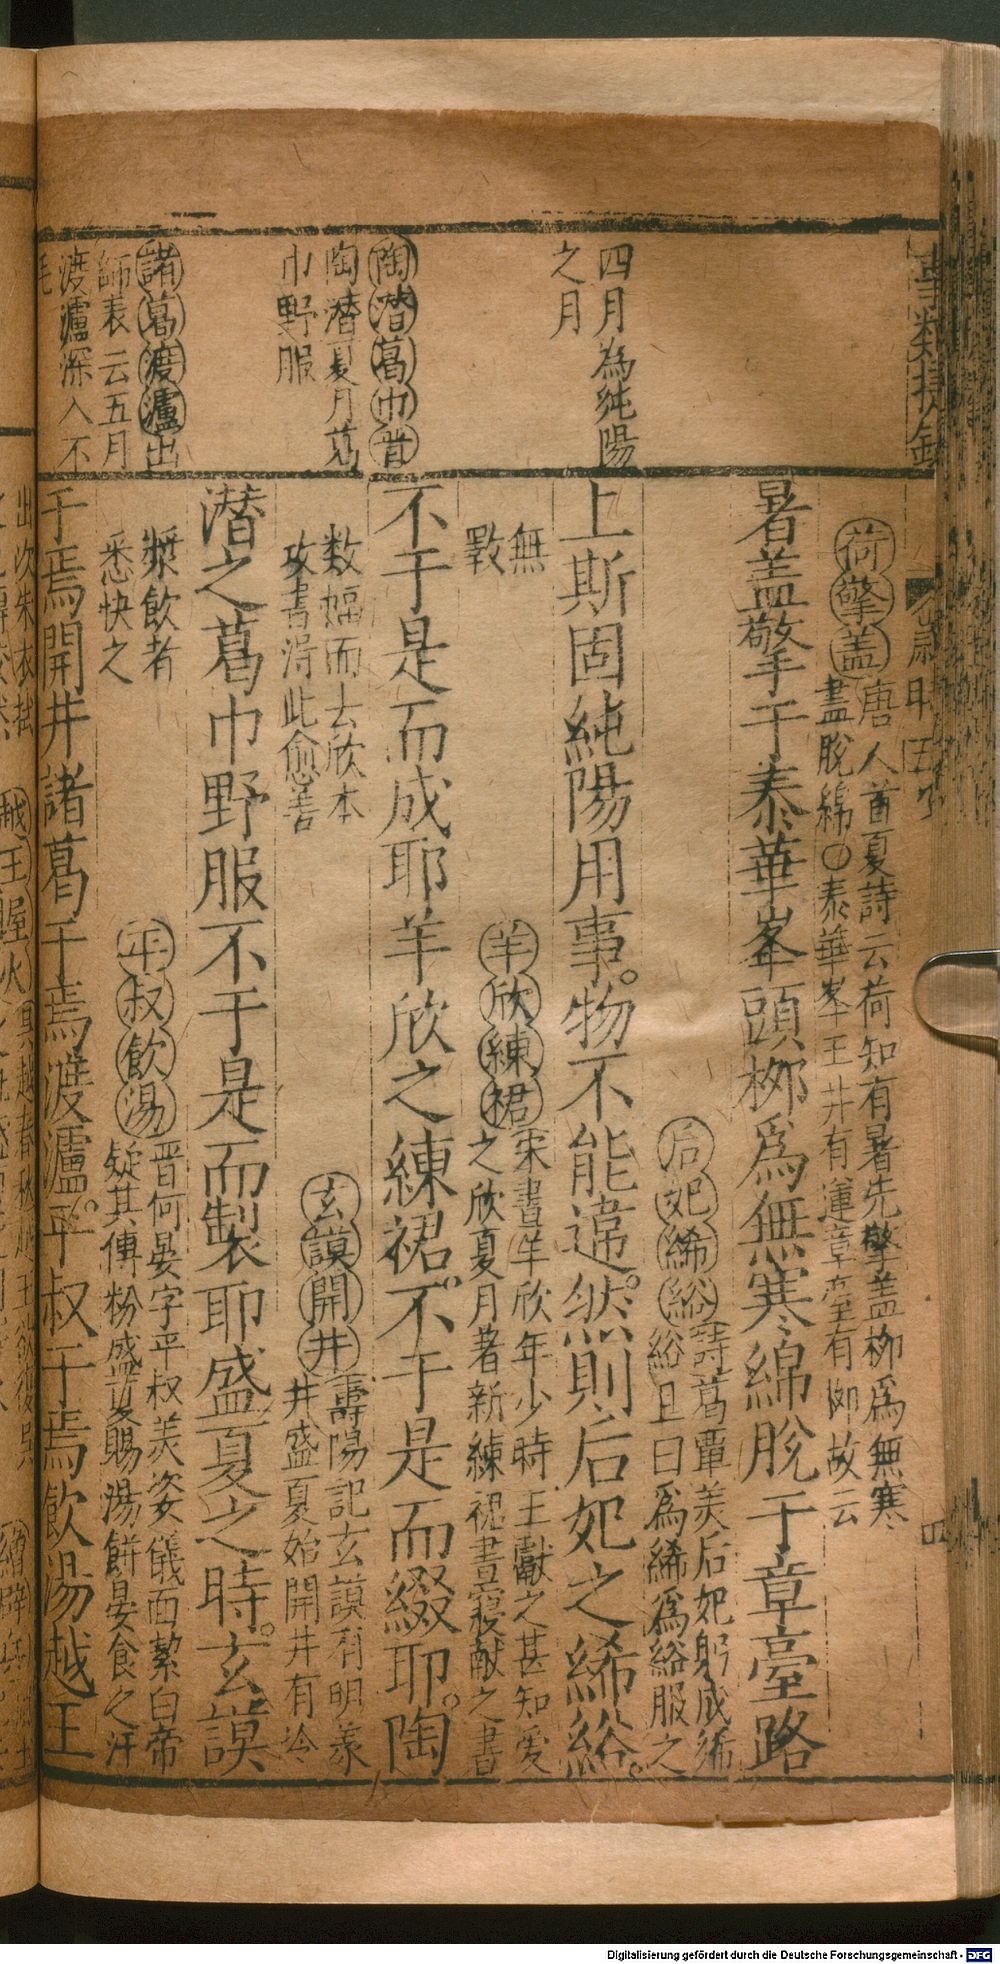 荷擎盖唐人首夏詩云荷知有暑先擎盖柳為無寒
盡脫綿○泰華峯玉井有蓮章臺有柳故云
暑盖擎于泰華峯頭柳為無寒綿脫于章臺路
四月為純陽
之月
后妃絺綌詩葛覃美后妃躬成絺
綌且曰為絺為綌服之
無
斁
上斯固純陽用事。物不能違。然則后妃之絺綌。
羊欣練裙宋書羊欣年少時王獻之甚知愛
之欣夏月著新練裙晝寢献之書
数幅而去欣本
攻書得此愈善
陶潛葛巾昔
陶潛夏月葛
巾野服
不于是而成耶羊欣之練裙。不于是而綴耶。陶
玄謨開井壽陽記玄謨有明義
井盛夏始開井有冷
漿飲者
悉快之
潛之葛巾野服不于是而製耶盛夏之時。玄謨
諸葛渡瀘出
師表云五月
渡瀘深入不
毛
平叔飲湯晋何晏字平叔美姿儀面絜白帝
疑其傅粉盛夏賜湯餅晏食之汗
于焉開井諸葛于焉渡瀘。平叔于焉飲湯越王
出次朱衣拭
越王握火
Digitalisierung gefördert durch die Deutsche Forschungsgemeinschaft - DFG